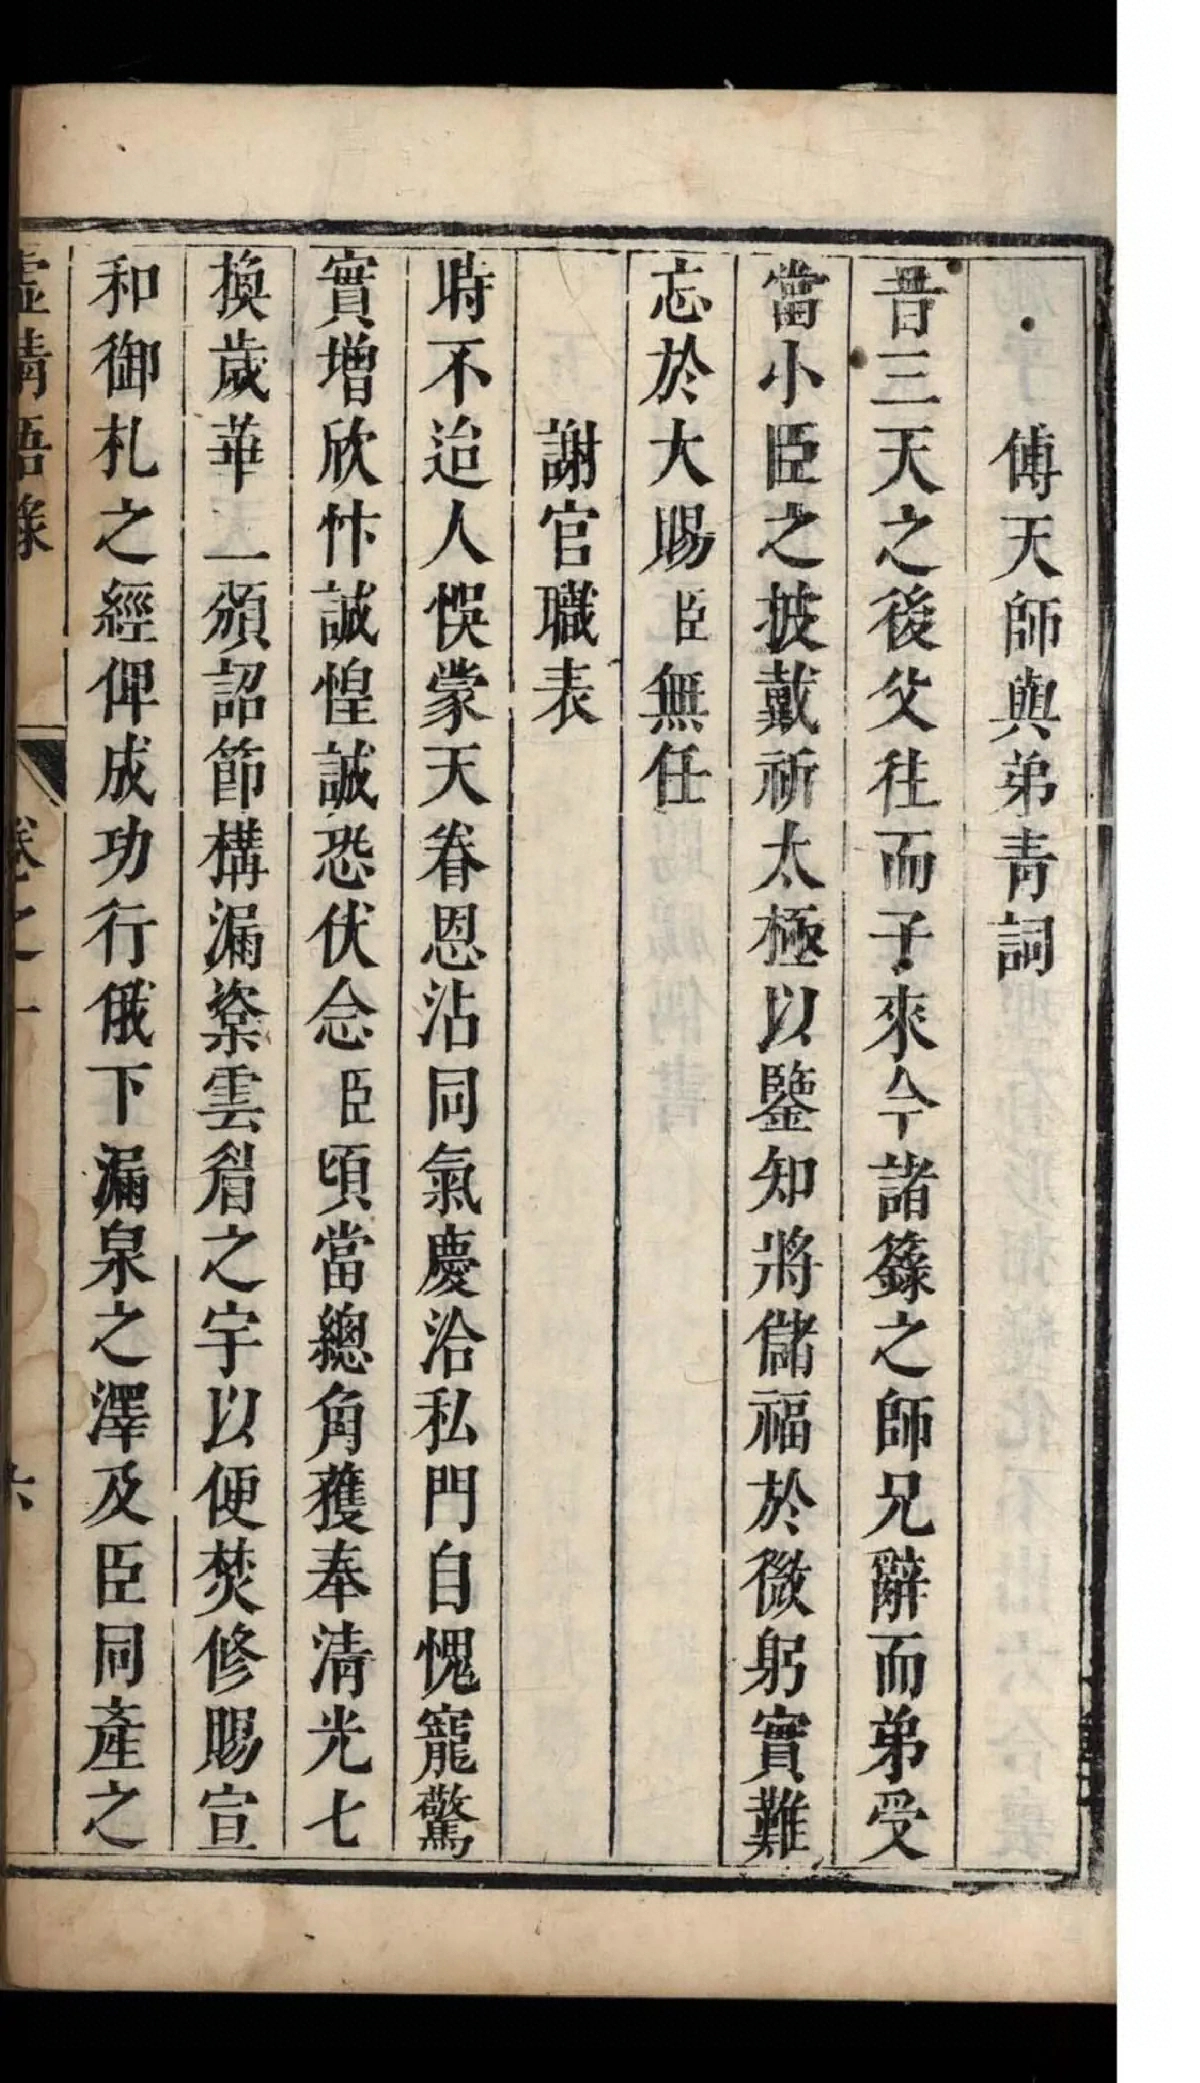 傅天師與弟青詞
昔三天之後父往而子來今諸籙之師兄辭而弟受
當小臣之披戴祈太極以鑒知將儲福於微躬實難
忘於大賜臣無任
謝官職表
時不迨人悞蒙天眷恩沾同氣慶洽私門自愧寵驚
實增欣忭誠惶誠恐伏念臣頃當總角獲奉清光七
換歲華一頒詔節構漏粢雲眉之宇以便焚修賜宣
和御札之經俾成功行俄下漏泉之澤及臣同產之
虛靖語錄 卷之一 六